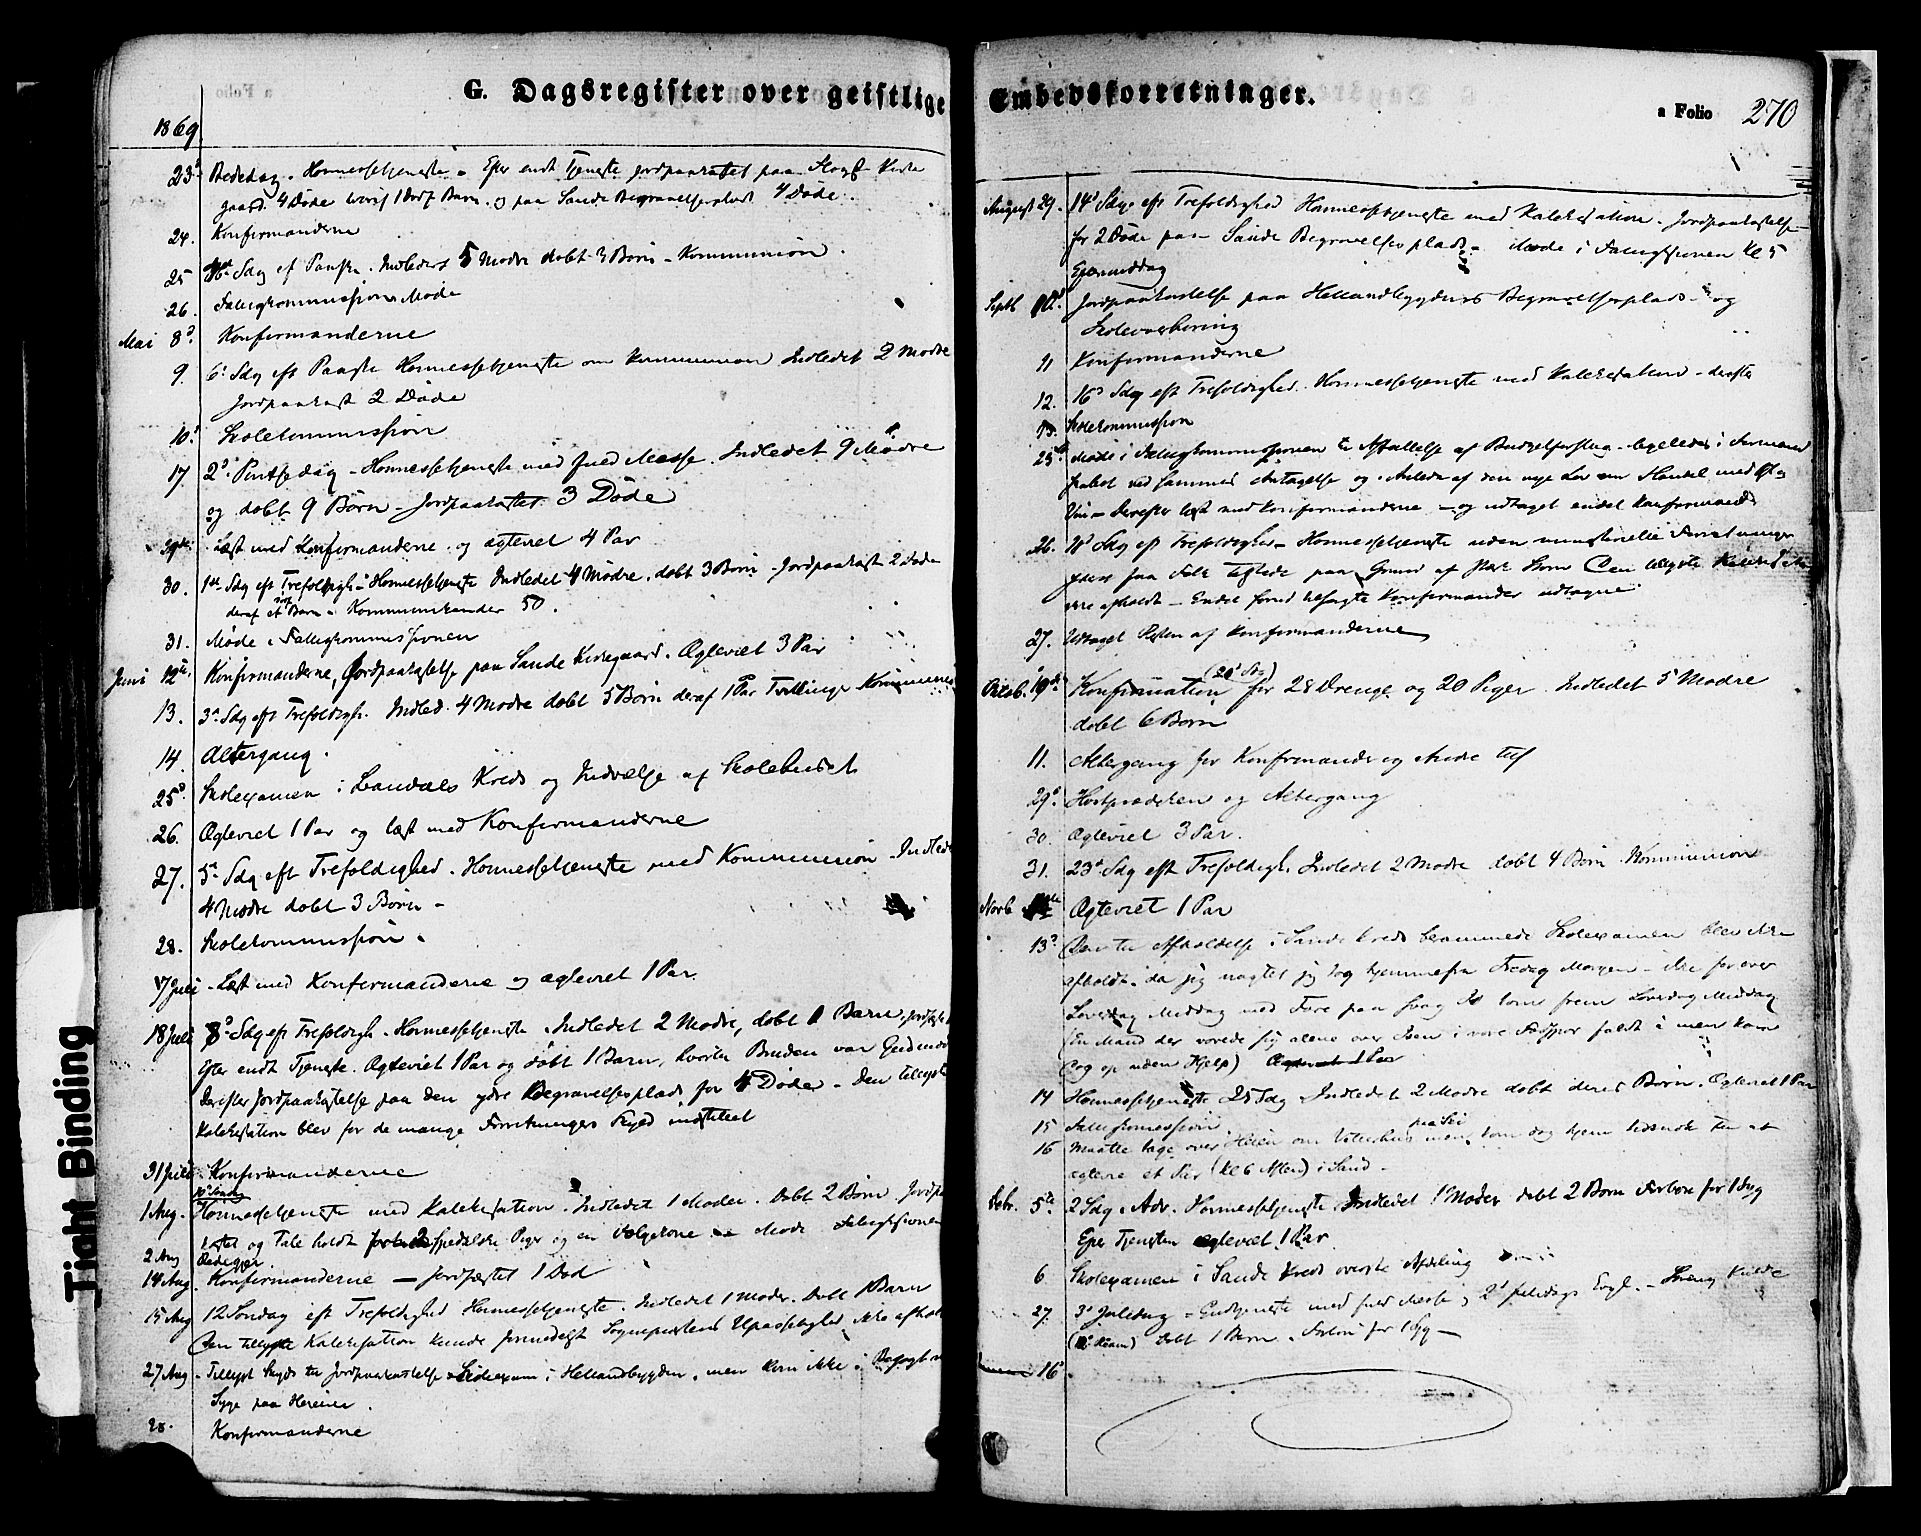 G. Dagsregister over geistlige
1869
23d Bededag. Høimessetjeneste. Efter endt Tjeneste jordpaakastet paa
gaard 4 Døde hvoraf 1 Barn, og paa Sande Begravelsesplads 4 Døde.
24. Konfirmanderne
25 Sdg ef Paaske. Indledet 5 Mødre døbt 3 Børn - Kommunion.
26. Møde
Mai 8d. Konfirmanderne
9. 6te Sdg eft Paaske Høimessetjeneste Kommunion Indledet 2 Mødre
Jordpaakast 2 Døde
10d Skolekommission
17 2d Pintsedag - Høimessetjeneste med fuld Messe. Indledet 9 Mødre
og døbt 9 Børn - Jordpaakastet 3 Døde
29de Læst med Konfirmanderne og ægteviet 4 Par
30. 1ste Sdg eft Trefoldigh - Høimessetjeneste Indledet 4 Mødre, døbt 3 Børn - Jordpaakast 2 Døde
deraf et Barn - Kommunikanter 50.
31. Møde i Fattigkommissionen
Juni 12te. Konfirmanderne, Jordpaakastelse paa Sande Kirkegaard. Ægteviet 3 Par
13. 3d Sdg eft Trefoldigh. Indled. 4 Mødre døbt 5 Børn deraf 1 Par Tvillinge
14. Altergang.
25d Skolexamen i Landals Kreds og Indvielse af Skolehuset
26. Ægteviet 1 Par og læst med Konfirmanderne
27. 5te Sdg eft Trefoldighed. Høimessetjeneste med Kommunion - Indledet
4 Mødre døbt 3 Børn -
28. Skolekommission.
17 Juli - Læst med Konfirmanderne og ægteviet 1 Par
18 Juli 8d Sdg eft Trefoldigh. Høimessetjeneste. Indledet 2 Mødre, døbt 1 Barn,
Efter endt Tjeneste. Ægteviet 1 Par og døbt 1 Barn, hvortil Bruden var
Derefter Jordpaakastelse paa den ydre Begravelsesplads for 4 Døde - Den tillyste
Katekisation blev for de mange Forretningers Skyld indstillet
31 Juli Konfirmanderne
1 Aug. Høimessetjeneste med Katekisation. Indledet 1 Moder. Døbt 2 Børn
kastet og Tale holdt spedalske Piger og en Møde
2 Aug
14 Aug. Konfirmanderne - Jordfæstet 1 Død
15 Aug 12 Søndag eft Trefoldighed Høimessetjeneste. Indledet 1 Moder. Døbt 1 Barn
Den tillyste Katekisation kunde formedelst Sognepræstens Upasselighed ikke
27 Aug - Tillyst Skyds til Jordpaakastelse i Hellandbygden, men kom ikke
Syge paa Hereiim.
28. Konfirmanderne
Embedsforretninger.
a Folio 270
August 29. 14d Sdg eft Trefoldighed Høimessetjeneste med Katekisation. Jordpaakastelse
for 2 Døde paa Sande Begravelsesplads. Møde i Kl 5
Eftermiddag
Septb 10d Jordpaakastelse paa Hellandbygdens Begravelsesplads og
Skoleoverhøring
11 Konfirmanderne
12. 16d Sdg eft Trefoldighed. Høimessetjeneste med Katekisation - derefter
13. Skolekommission
25d Møde i Fattigkommissionen til Affattelse af Budgetforslag - ligeledes i Formand
skabet ved sammes Antagelse og Anledn af den nye Lov om Handel med Øl og
Vin - Derefter læst med Konfirmanderne - og udtaget endel Konfirmander
26. 18d Sdg eft Trefoldighed - Høimessetjeneste uden ministerielle Forretninger
paa Grund af Storm Den tillyste
afholdt - Endel Konfirmander udtagne
27. Udtaget Resten af Konfirmanderne
Octob. 10de Konfirmation (20d Sdg) for 28 Drenge og 20 Piger. Indledet 5 Mødre
døbt 6 Børn
11. Altergang for Konfirmander og Andre
29d Høstprædiken og Altergang
30. Ægteviet 3 Par.
31. 23d Sdg eft Trefoldigh. Indledet 2 Mødre døbt 4 Børn Kommunion
Novb. Ægteviet 1 Par
13d Den til Afholdelse i Sande Kreds berammede Skolexamen blev ikke
afholdt, da jeg uagtet jeg tog hjemmefra Fredag Morgen - ikke før over
Løverdag Middag med Fare paa svag Is kom frem Løverdag Middag
(En Mand der vovede sig alene over Isen i vore Fodspor faldt i men kom
dog op uden Hjelp) Ægteviet 1 Par
14 Høimessetjeneste 25 Sdg Indledet 2 Mødre døbt deres Børn. Ægteviet 1 Par
15
16 Maatte tage over Heien om men kom dog hjem tidsnok til at
ægtevie et Par (Kl 6 Aften) i Sand -
Debr. 5te 2 Sdg i Adv. Høimessetjeneste Indledet 1 Moder døbt 2 Børn Forbøn for 1 Syg
Efter Tjenesten ægteviet 1 Par
6 Skolexamen i Sande Kreds øverste Afdeling
27. 3d Juledag - Gudtjeneste med fuld Messe og 2d Juledags Evgl. - Streng Kulde
Døbt 1 Barn. Forbøn for 1 Syg -
16d
Tight Binding